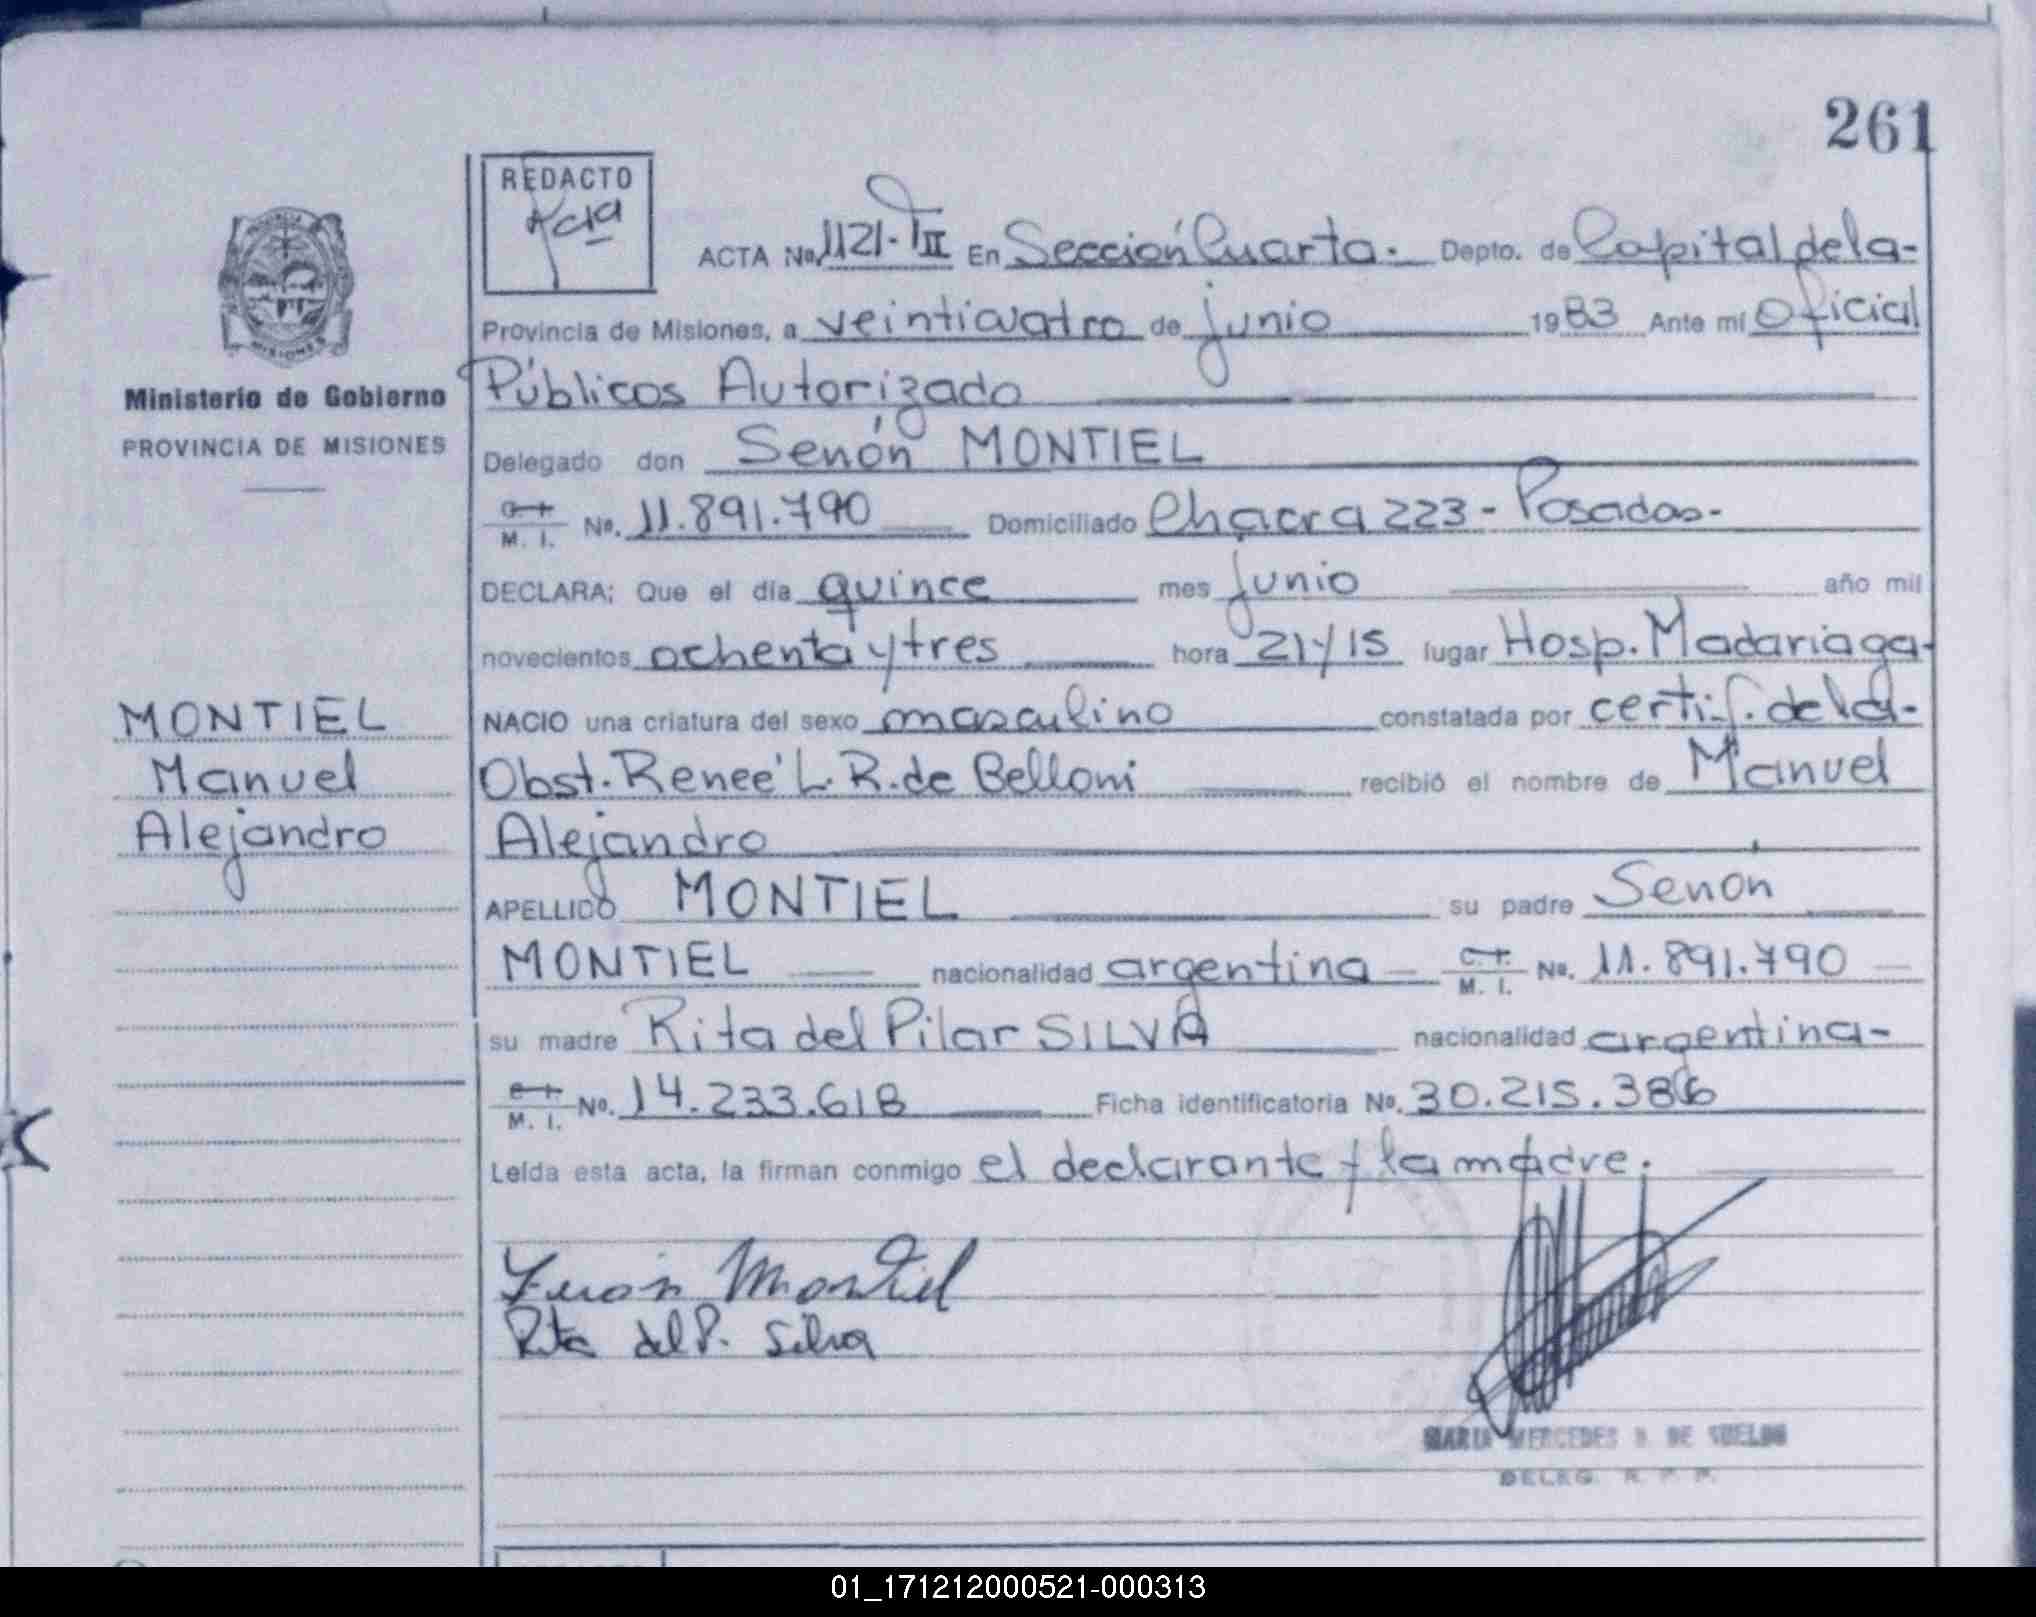 261
REDACTO
Acta
ACTA No. 1121. T II En Sección Cuarta. Depto. de Capital de la-
Provincia de Misiones, a veinticuatro de junio 1983 Ante mí Oficial
Públicos Autorizado
Delegado don Senón MONTIEL
M. I. No. 11.891.790 Domiciliado Chacra 223 - Posadas-
DECLARA; Que el día quince mes junio año mil
novecientos ochenta y tres hora 21 y 15 lugar Hosp. Madariaga-
NACIO una criatura del sexo masculino constatada por certif. de la-
Obst. Reneé L. R. de Belloni recibió el nombre de Manuel
Alejandro
APELLIDO MONTIEL su padre Senón
MONTIEL nacionalidad argentina C. I. M. I. No. 11.891.790
su madre Rita del Pilar SILVA nacionalidad argentina-
M. I. No. 14.233.618 Ficha identificatoria No. 30.215.386
Leída esta acta, la firman conmigo el declarante y la madre.
Montiel
Rita del P. Silva
MARIA MERCEDES DE
DELEG. R. P. P.
MISIONES
Ministerio de Gobierno
PROVINCIA DE MISIONES
MONTIEL
Manuel
Alejandro
01_171212000521-000313